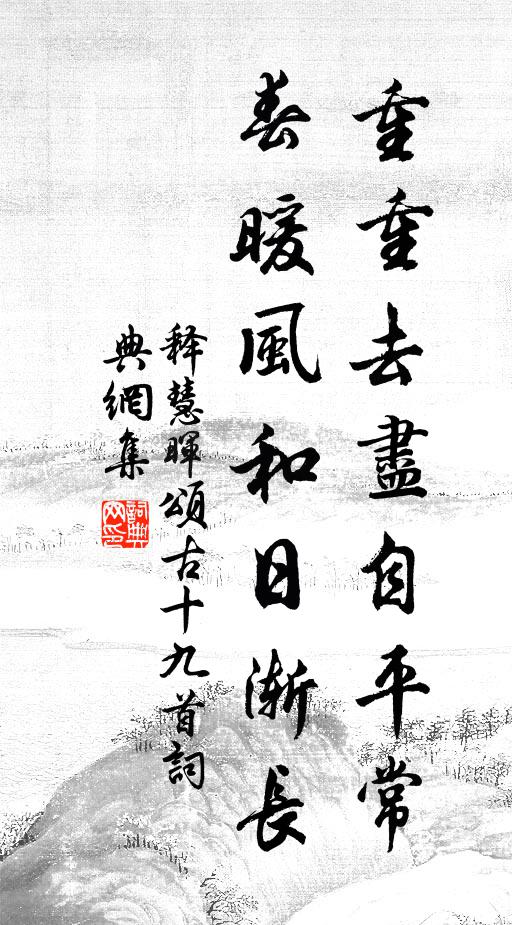 重重去盡自平常
春暖風和日漸長
释慧暉頌古十九首詞
典網集
詞典網印